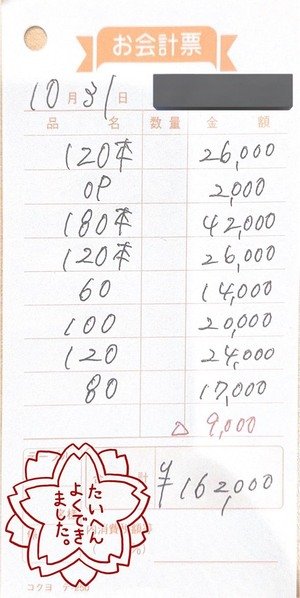 お会計票
10月31日
品名 数量 金額
120本 26,000
OP 2,000
180本 42,000
120本 26,000
60 14,000
100 20,000
120 24,000
80 17,000
△ 9,000
計 ¥162,000
たいへん
よくでき
ました。
コクヨ テ-250